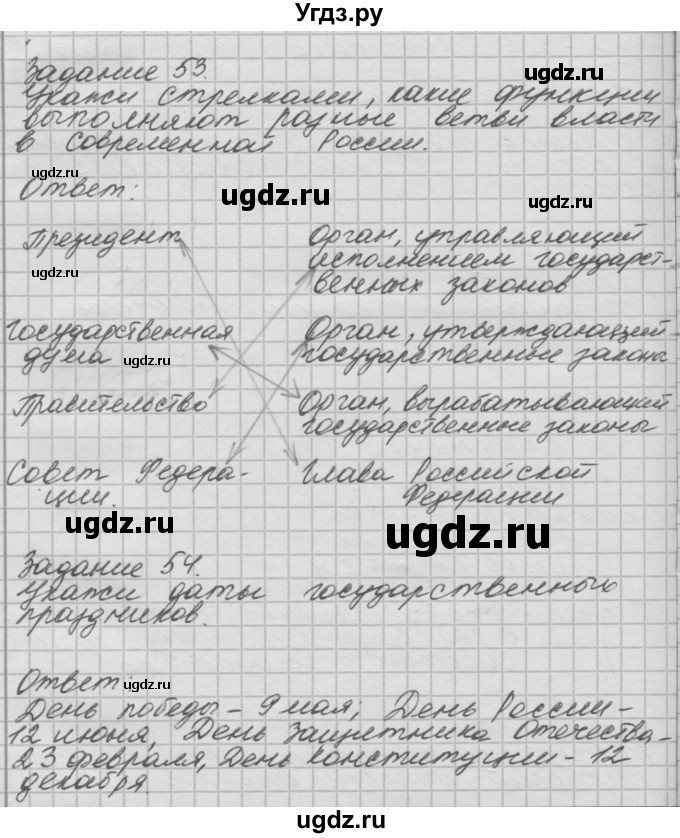 Угдз.ру
Задание 53.
ugdz.ru
Укажи стрелками, какие функции
выполняют разные ветви власти
ugdz.ru
в современной России.
ugdz.ru
Ответ:
ugdz.ru
ugdz.ru
Президент
Орган, управляющий
исполнением государст-
венных законов
ugdz.ru
Государственная
дума
Орган, утверждающий
государственные законы
ugdz.ru
ugdz.ru
Правительство
Орган, вырабатывающий
государственные законы
Совет Федера-
ции.
Глава Российской
Федерации
ugdz.ru
ugdz.ru
Задание 54.
Укажи даты государственных
праздников.
Ответ:
ugdz.ru
ugdz.ru
День победы - 9 мая, День России -
12 июня, День Защитника Отечества -
23 февраля, День Конституции - 12
декабря
ugdz.ru
ugdz.ru